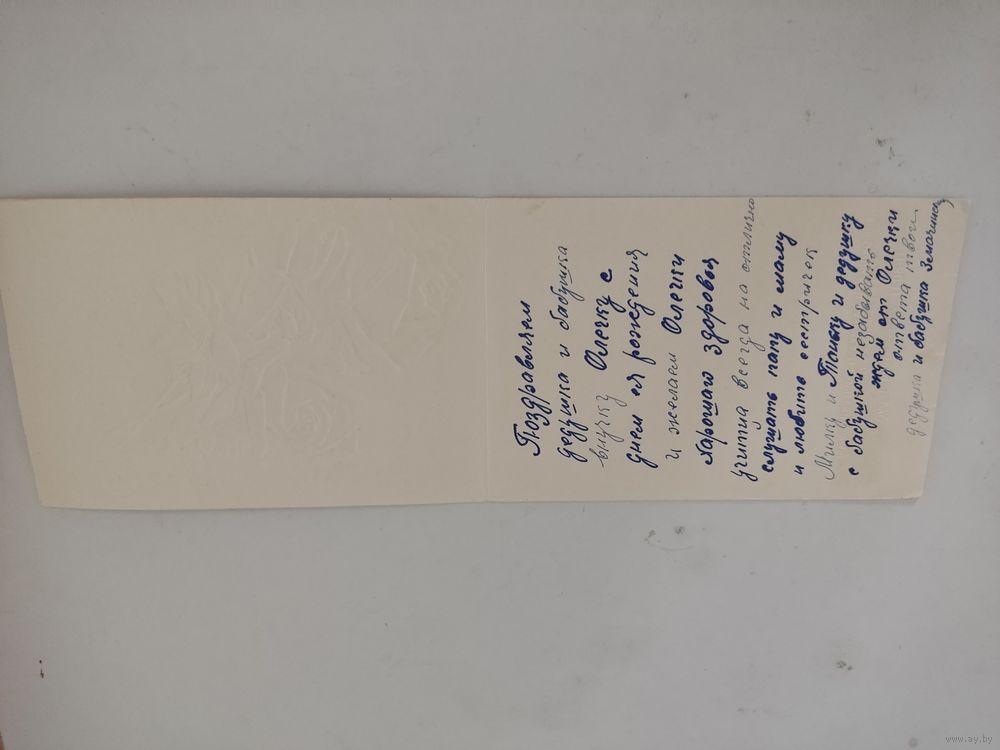 Поздравляем
дедушка и бабушка
внучку Олечку с
днем ея рождения
и желаем Олечки
харошаго здоровья
учитца всегда на отлично
слушать папу и маму
и любить сестричек
Милку и Таньку и дедушку
с бабушкой незабывать
ждем от Олечки
ответа твои
дедушка и бабушка
www.ay.by